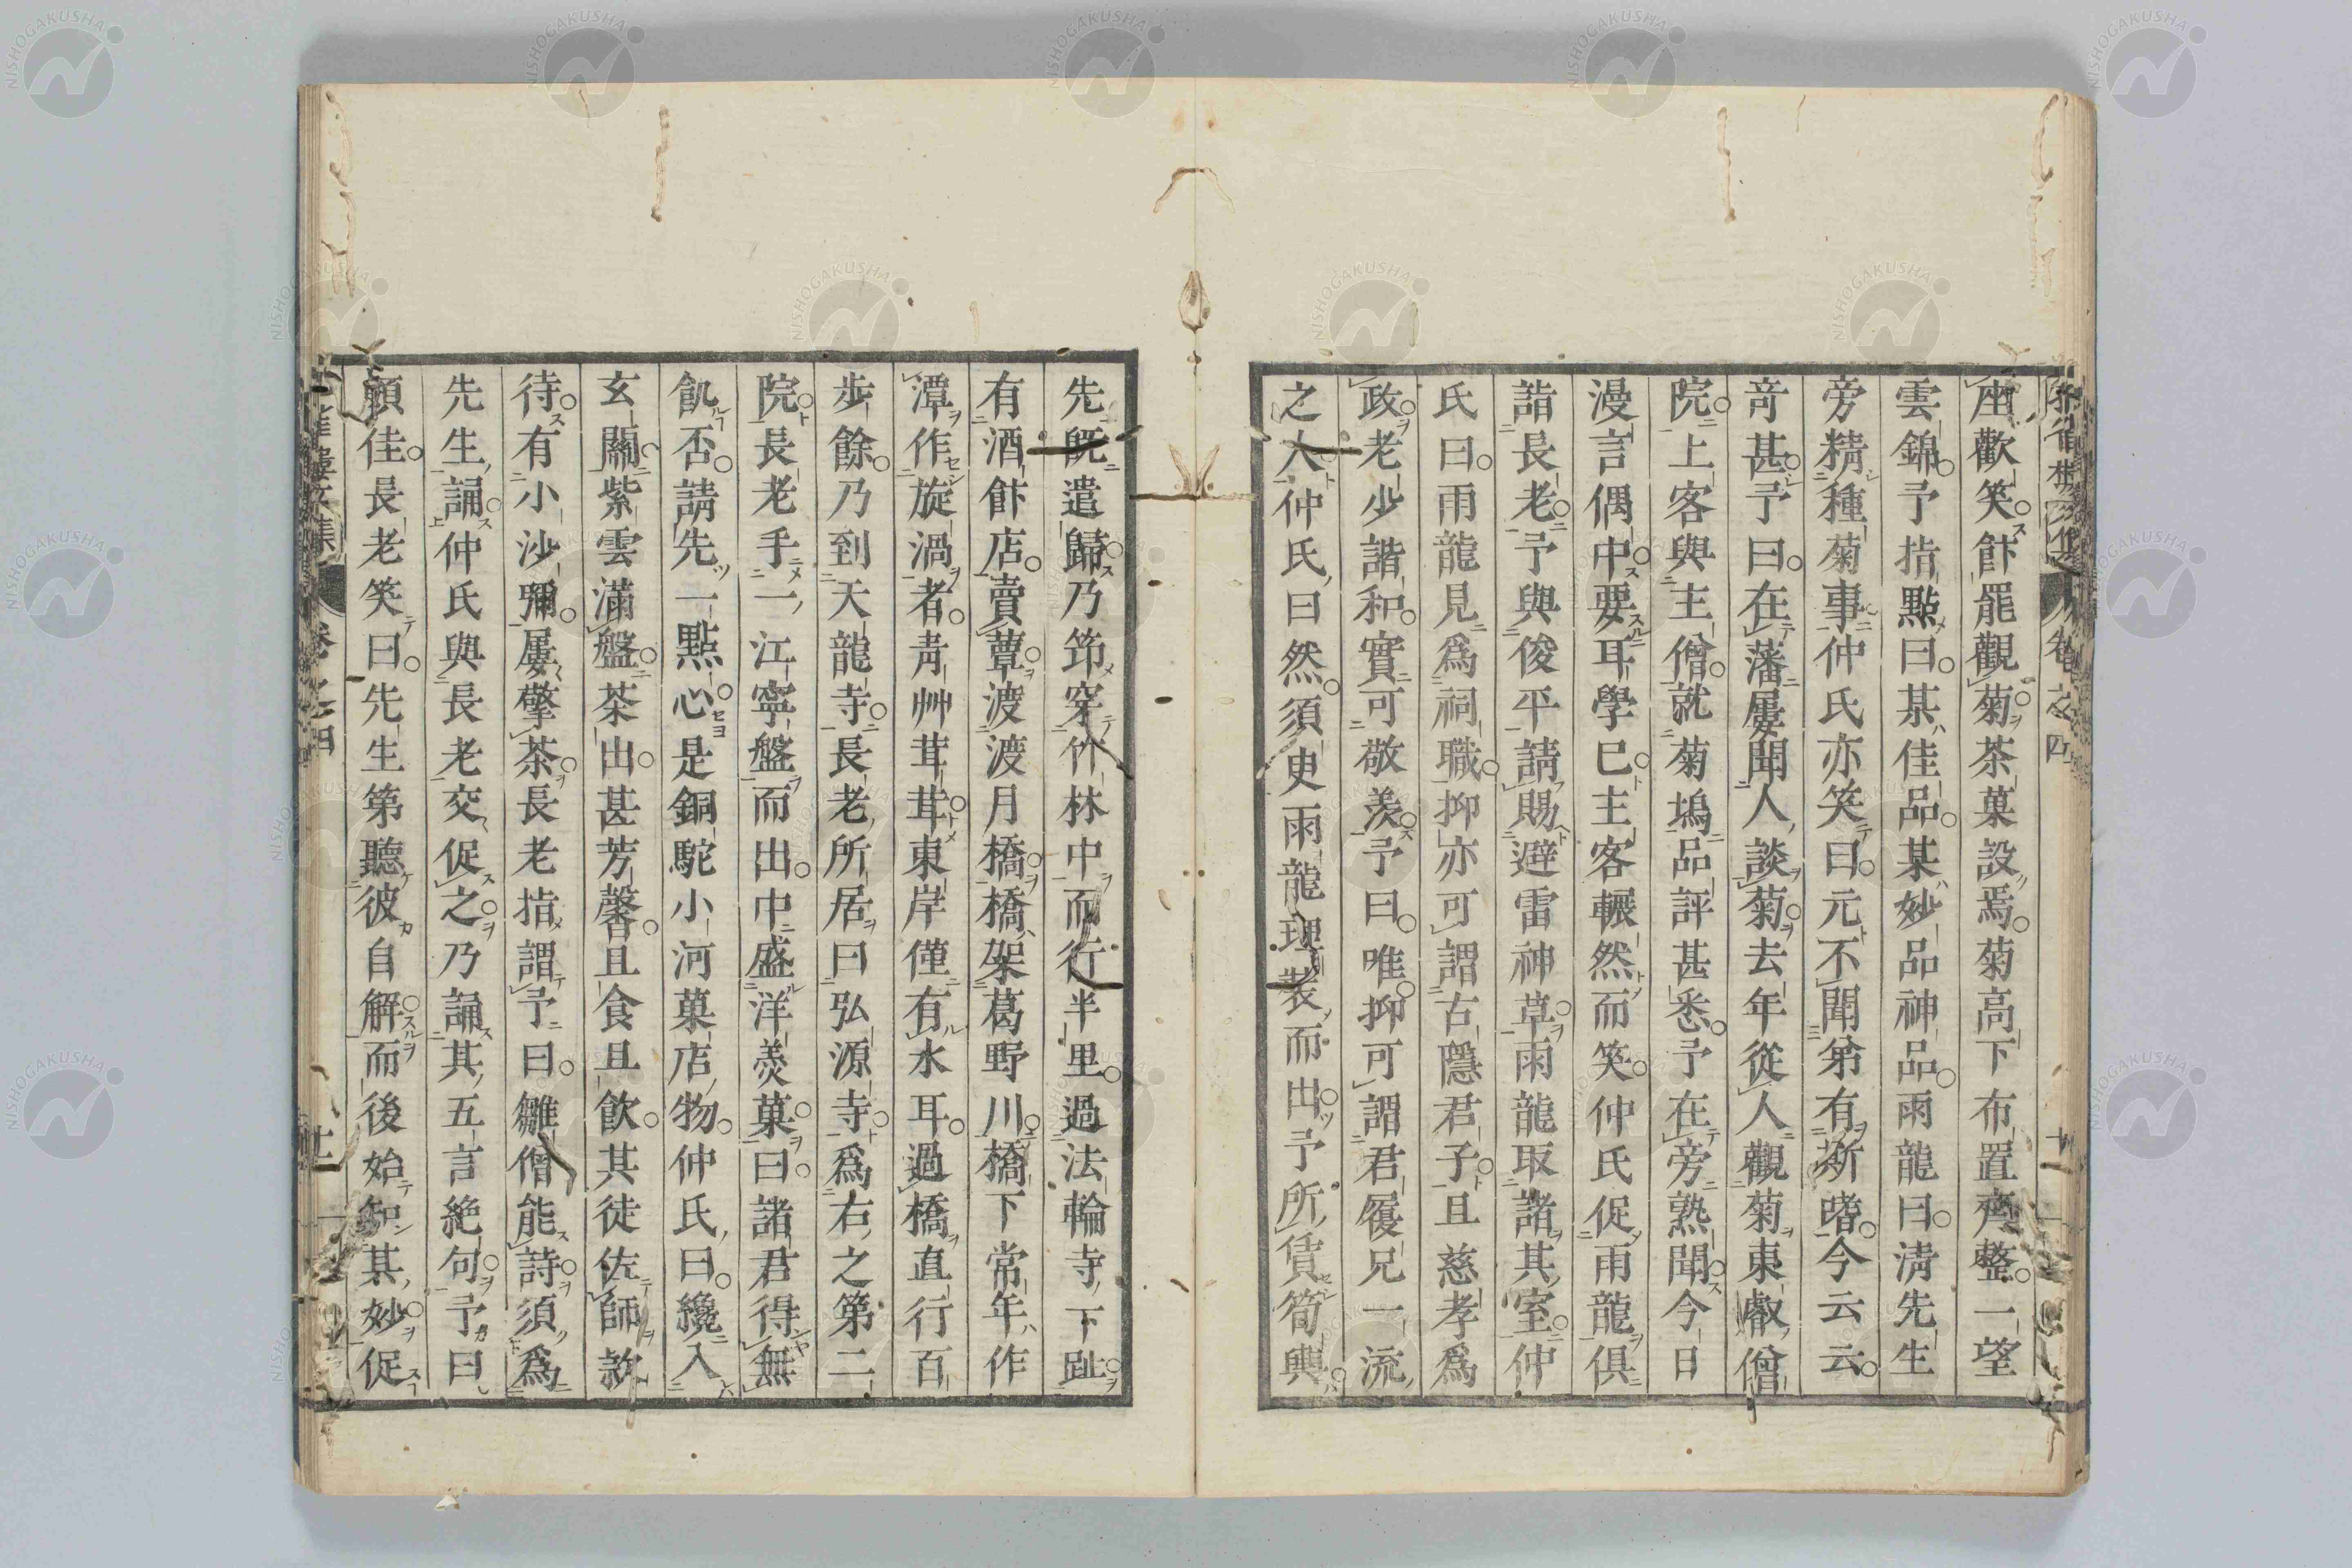 座歡笑。飰罷觀菊。茶菓設焉。菊高下布置齊整。一望
雲錦。予指點曰。某佳品。某妙品神品。雨龍曰。淸先生
旁精種菊事。仲氏亦笑曰。元不聞第有斯嗜。今云云。
竒甚。予曰。在藩屢聞人談菊。去年從人觀菊東叡僧
院。上客與主僧。就菊塢品評甚悉。予在旁熟聞。今日
漫言偶中。要耳學已。主客囅然而笑。仲氏促雨龍俱
詣長老。予與俊平請賜避雷神草。雨龍取諸其室。仲
氏曰。雨龍見爲祠職。抑亦可謂古隱君子。且慈孝爲
政。老少諧和。實可敬羨。予曰。唯。抑可謂君履兄一流
之人。仲氏曰然。須臾雨龍理裝而出。予所賃筍輿。
先既遣歸。乃筇穿竹林中而行半里。過法輪寺下趾。
有酒飰店。賣蕈。渡渡月橋。橋架葛野川。橋下常年作
潭作旋渦者。靑艸茸茸。東岸僅有水耳。過橋直行百
步餘。乃到天龍寺。長老所居曰弘源寺。寺爲右之第二
院。長老手一江寧盤而出。中盛洋羮菓。曰。諸君得無
飢否。請先一點心。是銅駝小河菓店物。仲氏曰。纔入
玄關。紫雲滿盤。茶出。甚芳馨。且食且飮。其徒佐師欵
待。有小沙彌。屢擎茶。長老指謂予曰。雛僧能詩。須爲
先生誦。仲氏與長老交促之。乃誦其五言絶句。予曰
頗佳。長老笑曰。先生第聽彼自解。而後始知其妙。促
卷之四